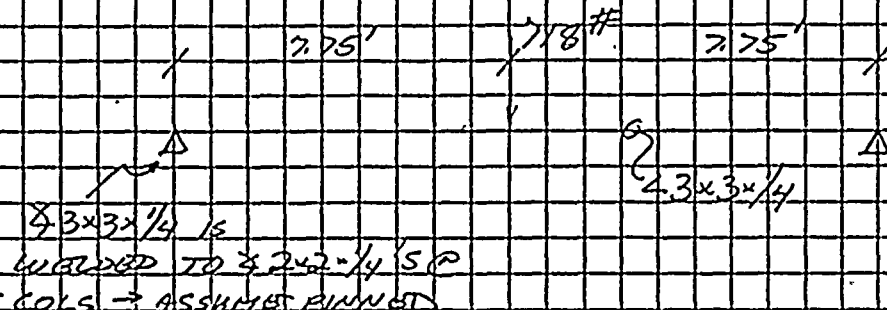 7.75' 718# 7.75'
∠3x3x1/4
∠3x3x1/4 IS
WELDED TO ∠2x2x1/4'S @
COLS → ASSUMES PINNED